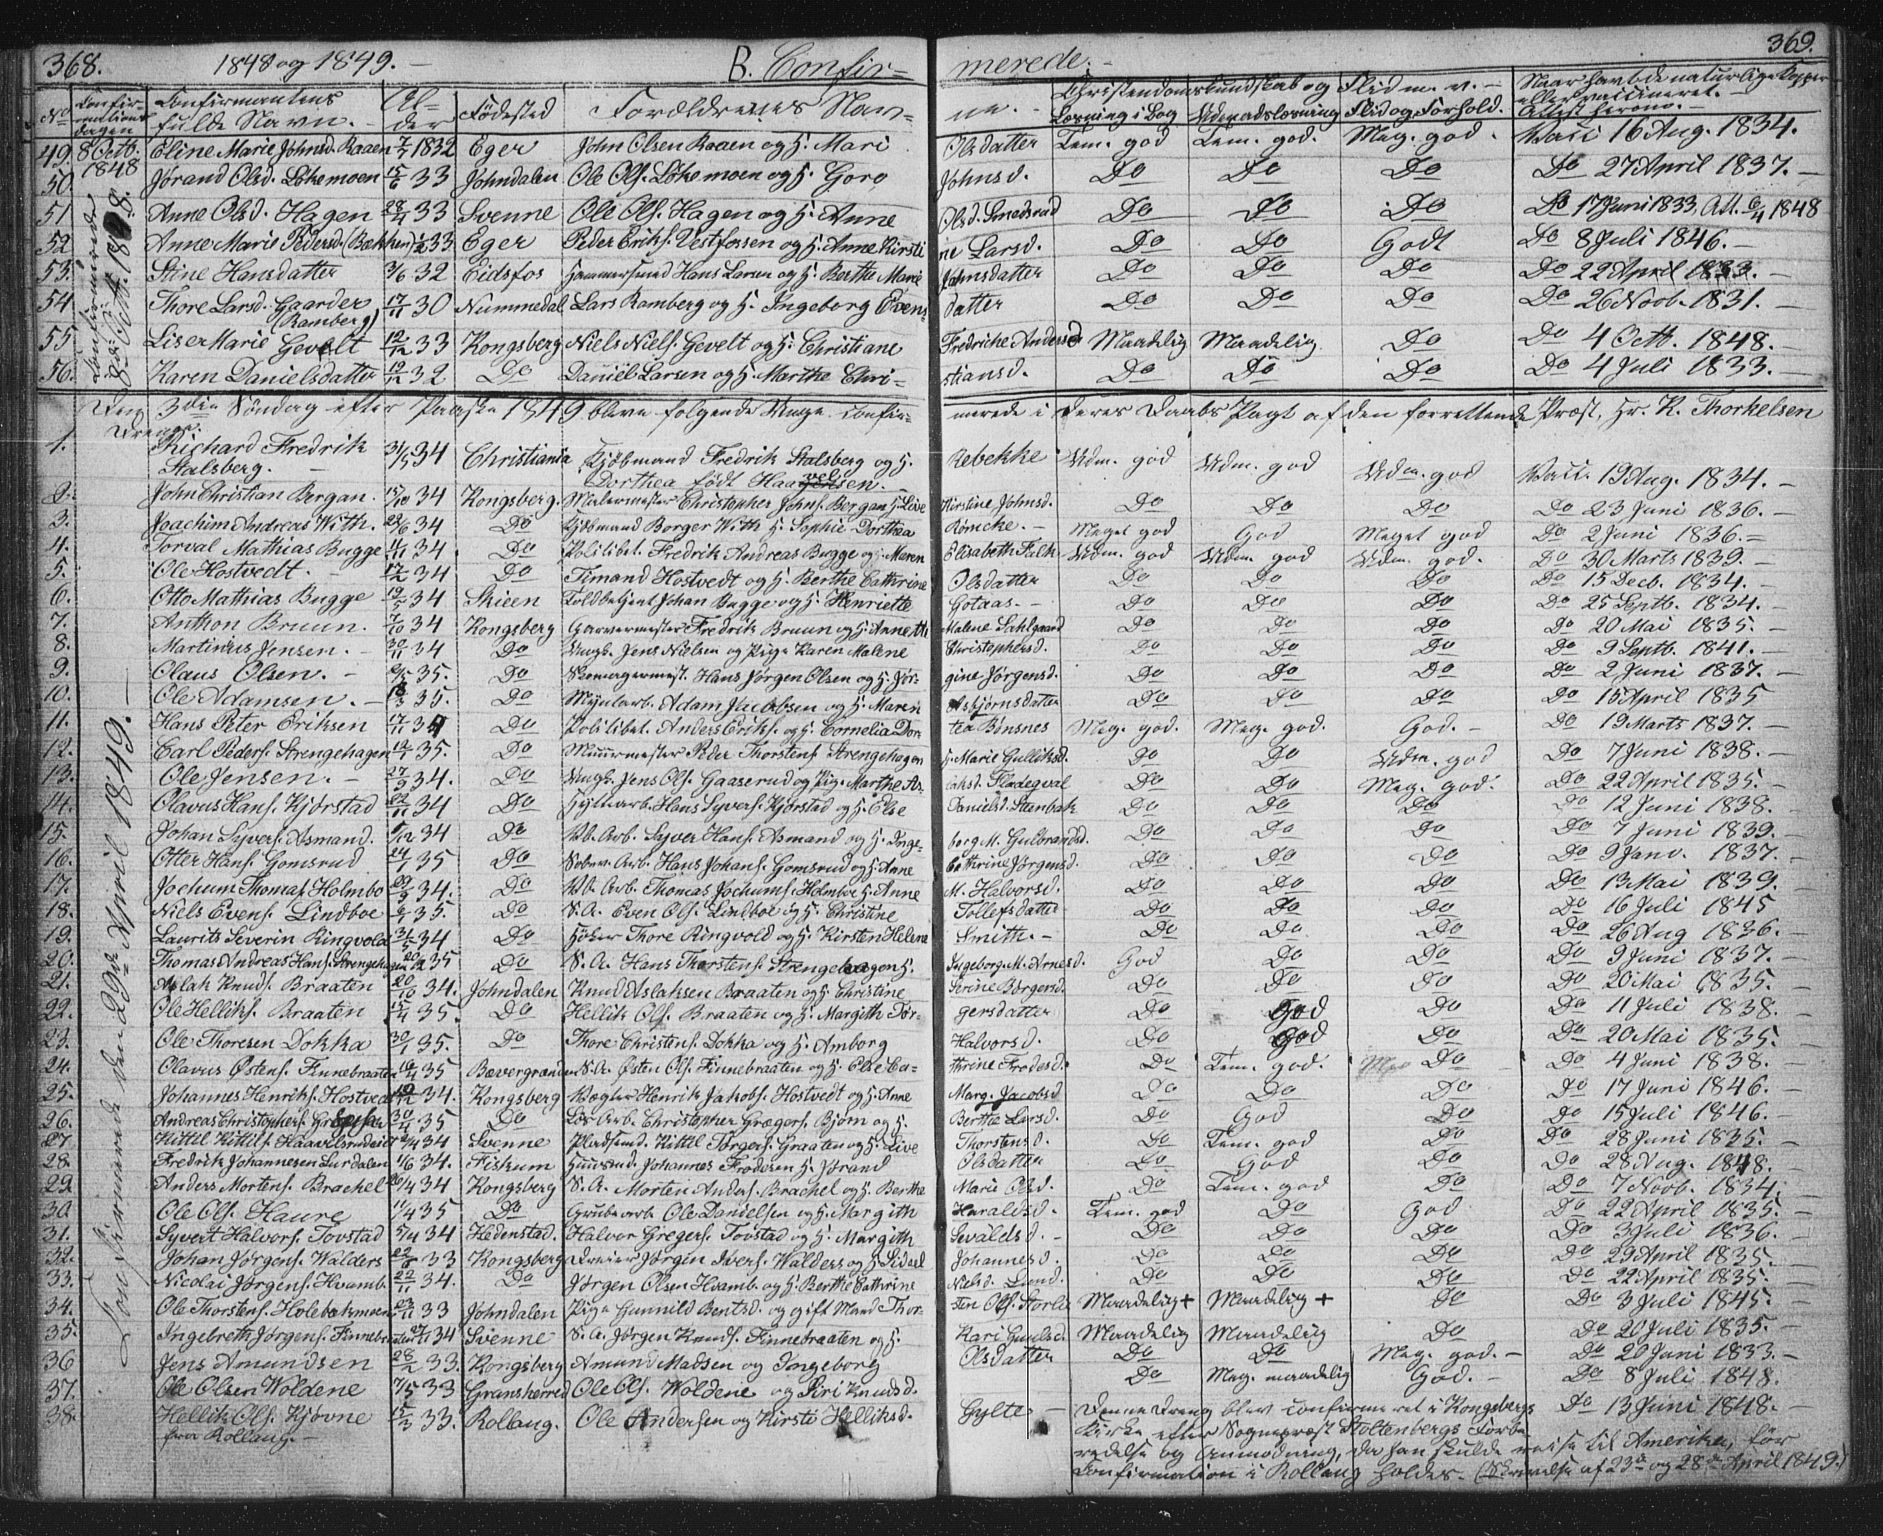 368. 1848 og 1849. — B. Confir= merede. — 369.
No Confirmations dagen Confirmantens fulde Navn. — Alder Fødested Forældrenes Navne. — Christendomskundskab og Flid m. v. — Naar havde naturlige Kopper eller vaccineret.
Læsning i Bog Udenadslæsning Flid og Forhold. Attest herom. —
49. 8 Octb. 1848 Eline Marie Johnsd. Raaen 1832 Eger John Olsen Raaen og H. Mari Olsdatter Tem. god Tem. god. Meg. god. Vacc. 16 Aug. 1834.
50. Jørand Olsd. Løkemoen 15/6 33 Johndalen Ole Ols. Løkemoen og H. Goro Johnsd. Do Do Do Do 27 April 1837. —
51. Anne Olsd. Hagen 28/4 33 Svenne Ole Ols. Hagen og H. Anne Olsd. Smedsrud Do Do Do Do 17 Juni 1833. Att. 6/4 1848
52 Anne Marie Pedersd. (Bækken) 33 Eger Peder Eriks. Vestfossen og H. Anne Kirstine Larsd. Do Do Godt Do 8 Juli 1846. —
53. Stine Hansdatter 3/6 32 Eidsfos Hammersmed Hans Larsen og H. Berthe Marie Johnsdatter Do Do Do Do 22 April 1833. —
54. Thore Larsd. Gaarder (Ramberg) 17/11 30 Nummedal Lars Ramberg og H. Ingeborg Evensdatter Do Do Do Do 26 Novb. 1831. —
55 Lise Marie Gevelt 12/12 33 Kongsberg Niels Niels. Gevelt og H. Christiane Fredriche Andersd Maadelig Maadelig Do Do 4 Octb. 1848. —
56. Karen Danielsdatter 19/12 32 Do Daniel Larsen og H. Marthe Christiansd. Do Do Do Do 4 Juli 1833. —
Confirmerede 8de Octb. 1848.
Den 3die Søndag efter Paaske 1849 bleve følgende Unge confirmerede i deres Daabs Pagt af den forrettende Præst, Hr. K. Thorkelsen
Drenge.
1. Richard Fredrik Stalsberg. — 31/5 34 Christiania Kjøbmand Fredrik Stalsberg og H. Dorthea født Rebekke Udm. god Udm. god Udm. god Vacc. 19 Aug. 1834. —
2. John Christian Bergan. 15/10 34 Kongsberg. Malermester Christopher Johns. Bergan H. Live Kirstine Johnsd. Do Do Do Do 23 Juni 1836. —
3. Joachim Andreas With. 22/6 34 Do Kjøbmand Borger With H. Sophie Dorthea Rømcke. — Meget god God Meget god Do 2 Juni 1836. —
4. Torval Mathias Bugge 4/11 34. Do Politibet. Fredrik Andreas Bugge og H. Maren Elisabeth Falk Udm. god Udm. god Udm. god. Do 30 Marts 1839. —
5. Ole Hostvedt. — 17/2 34 Do Timand Hostvedt og H. Berthe Cathrine Olsdatter Do Do Do Do 15 Decb. 1834. —
6. Otto Mathias Bugge 19/5 34 Skieen Toldbetjent Johan Bugge og H. Henriette Gotaas. — Do Do Do Do 25 Septb. 1834. —
7. Anthon Bruun. 7/10 34 Kongsberg Garvermester Fredrik Bruun og H. Annethe Malene Dahlgaard Do Do Do Do 20 Mai 1835. —
8. Martinius Jensen. — 30/11 34 Do Ungk. Jens Nielsen og Pige Karen Malene Christophersd. Do Do Do Do 9 Septb. 1841. —
9. Claus Olsen. — 35. Do Skomagermest. Hans Jørgen Olsen og H. Jørgine Jørgensd. Do Do Do Do 2 Juni 1837. —
10. Ole Adamsen. — 18/3 35. Do Myntarb. Adam Jacobsen og H. Maren Asbjørnsdatter Do Do Do Do 15 April 1835
11. Hans Peter Eriksen 17/11 34 Do Politibet. Anders Eriks. og H. Cornelia Dortea Bønsnes Meg. god. Meg. god. God. — Do 19 Marts 1837. —
12. Carl Peders. Strengehagen 35. Do Muurmester Peder Thorstens. Strengehagen H. Marie Gulliksd. Do Do Udm. god Do 7 Juni 1838. —
13. Ole Jensen. — 27/3 34. Do Ungk. Jens Ols. Gaaserud og Pig. Marthe Fladegval Do Do Meg. god. Do 22 April 1835. —
14. Olavus Hans. Kjørstad 22/11 34 Do Hyttearb. Hans Syvers. Kjørstad og H. Else Danielsd. Stenbak Do Do Do Do 12 Juni 1838. —
15. Johan Syvers. Asmand. 8/12 34 Do Vb. Arb. Syver Hans. Asmand og H. Ingeborg M. Gulbrandsd. Do Do Do Do 7 Juni 1839. —
16. Otter Hans. Gomsrud 24/1 35 Do Arb. Hans Johans. Gomsrud og H. Anne Cathrine Jørgensd. Do Do Do Do 9 Janv. 1837. —
17. Jochum Thomas. Holmbo 29/9 34. Do Vb. Arb. Thomas Jochums. Holmboe H. Anne M. Halvorsd. Do Do Do Do 13 Mai 1839. —
18. Niels Evens. Lindboe 6/1 35. Do S. A. Even Ols. Lindboe og H. Christine Tollefsdatter Do Do Do Do 16 Juli 1845
19. Laurits Severin Ringvold 31/5 34 Do Høker Thore Ringvold og H. Kirsten Helene Smith. — Do Do Do Do 26 Aug 1836. —
20. Thomas Andreas Hans. Strengehagen 35 Do S. A. Hans Thorstens. Strengehaagen H. Ingeborg. M. Arnesd. God Do Do Do 9 Juni 1837. —
21. Aslak Knuds. Braaten 20/10 34. Johndalen Knud Aslaksen Braaten og H. Christine Serine Børgersd. Do Do Do Do 20 Mai 1835. —
22. Ole Helliks. Braaten 15/4 35. Do Hellik Ols. Braaten og H. Margith Tørgersdatter Do God Do Do 11 Juli 1838. —
23. Ole Thoresen Dokka 30/1 35. Do Thore Christens. Dokka og H. Amborg Halvorsd. Do God Do Do 20 Mai 1835. —
24. Olavus Østens. Finnebraaten 16/4 35 Bævergrænden S. A. Østen Ols. Finnebraaten og H. Else Cathrine Fredesd. Do Tem. god. Do Do 4 Juni 1838. —
25. Johannes Henriks. Hostvedt 19/12 34. Kongsberg Vægter Henrik Jakobs. Hostvedt og H. Anne Marg. Jacobsd Do Do Do Do 17 Juni 1846. —
26. Andreas Christophers. 30/11 35 Do Løs Arb. Christopher Grægers. Bjørn og H. Berthe Larsd. Do God Do Do 15 Juli 1846. —
27. Kittil Kittils. 34 Svenne Pladsmd. Kittil Torgers. Graaten og H. Live Thorstensd. Do Tem. god Do Do 28 Juni 1835. —
28. Fredrik Johannesen Lurdalen 1/6 34. Fiskum Huusmd. Johannes Frodesen H. Jørand Olsdatter Do God Do Do 28 Aug. 1848. —
29. Anders Mortens. Brachel 34 Kongsberg S. A. Morten Anders. Brachel og H. Berthe Marie Olsd. Do Tem. god Do Do 7 Novb. 1834.
30. Ole Ols. Haure 11/4 35 Do Grubearb. Ole Danielsen og H. Margith Haraldsd. Tem. god Do God Do 22 April 1835. —
31. Syvert Halvors. Tovstad 5/4 34 Hedenstad. Halvor Gregers. Tovstad og H. Margith Sevaldsd. — Do Do Do Do 3 Juli 1836. —
32. Johan Jørgens. Walders 22/8 33 Kongsberg Dreier Jørgen Ivers. Walders og H. Sidsel Johannesd. Do Do Do Do 29 April 1835. —
33. Nicolai Jørgens. Hvamb. 22/11 34. Do Jørgen Olsen Hvamb. og H. Berthe Cathrine Nielsd. Lund. Do Do Do Do 22 April 1835. —
34. Ole Thorstens. Holebækmoen 23/11 33 Johndalen Pige Gunnild Bentsd. og gift Mand Thorsten Ols. Sorlie Maadelig + Maadelig + Do Do 3 Juli 1845. —
35. Ingebreth Jørgens. Finnebraaten 34 Svenne S. A. Jørgen Knuds. Finnebraaten og H. Kari Gunlsd. Maadelig Maadelig Do Do 20 Juli 1835. —
36 Jens Amundsen 28/2 33. Kongsberg Amund Madsen og Ingeborg Olsdatter Do Do Meg. god. — Do 20 Juni 1833. —
37. Ole Olsen Woldene 7/5 33 Gransherred Ole Ols. Woldene og Siri Knudsd. Do Meg. maadelig God. — Do 8 Juli 1848.
38. Hellik Ols. Kjøvne fra Rollaug. — 15/3 33. Rollaug. Ole Andersen og Kirsti Helliksd. Gylte — Denne Dreng blev confirmeret i Kongsbergs Do 13 Juni 1848. —
Kirke efter Sognepræst Stoltenbergs Forbe
redelse og Anmodning, da han skulde reise til Amerika, før
Confirmation i Rollaug holdes. — (Skrivelse af 23de og 28de April 1849.)
Confirmerede den 29de April 1849. —